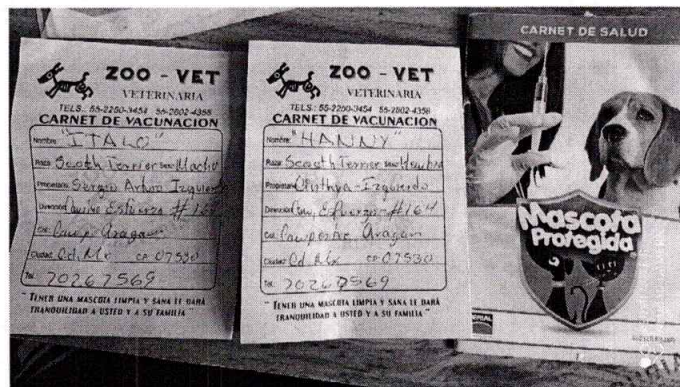 ZOO - VET
VETERINARIA
TELS.: 55-2250-3454 55-2602-4356
CARNET DE VACUNACION
Nombre: "ITALO"
Raza: Scooth Terrier Sexo: Macho
Propietario: Sergio Arturo Izquier
Dirección: Camino Esfuerzo # 164
Col. Camp. Aragon
Ciudad: Cd. Mx CP. 07530
Tel. 70267569
"TENER UNA MASCOTA LIMPIA Y SANA LE DARÁ
TRANQUILIDAD A USTED Y A SU FAMILIA"
ZOO - VET
VETERINARIA
TELS.: 55-2250-3454 55-2602-4356
CARNET DE VACUNACION
Nombre: "HANNY"
Raza: Scooth Terrier Sexo: Hembra
Propietario: Izquierdo
Dirección: Esfuerzo #164
Col. Campestre Aragon
Ciudad: Cd. Mx CP. 07530
Tel. 70267569
"TENER UNA MASCOTA LIMPIA Y SANA LE DARÁ
TRANQUILIDAD A USTED Y A SU FAMILIA"
CARNET DE SALUD
Mascota
Protegida